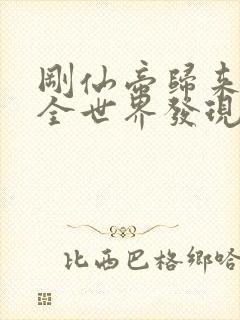 剛仙帝歸来
全世界發現
比西巴格鄉哈